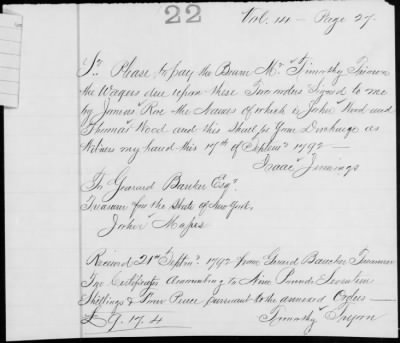 22
Vol. 14 - Page 27.
Sr. Please to pay the Bearer Mr. Timothy
the Wages due upon these Two orders Signed to me
by James Roe the Names of which is John Wood and
Thomas Wood and this Shall be Your Discharge as
Witness my hand this 17th of Septemr 1792 -
Isaac Jennings
To Gerard Banker Esqr.
Treasurer for the State of New York.
John Mapes
Received 21st Septmr. 1792 from Gerard Bancker Treasurer
Two Certificates Amounting to Nine Pounds Seventeen
Shillings & Four Pence pursuant to the annexed Orders -
£ 9. 17. 4
Timothy